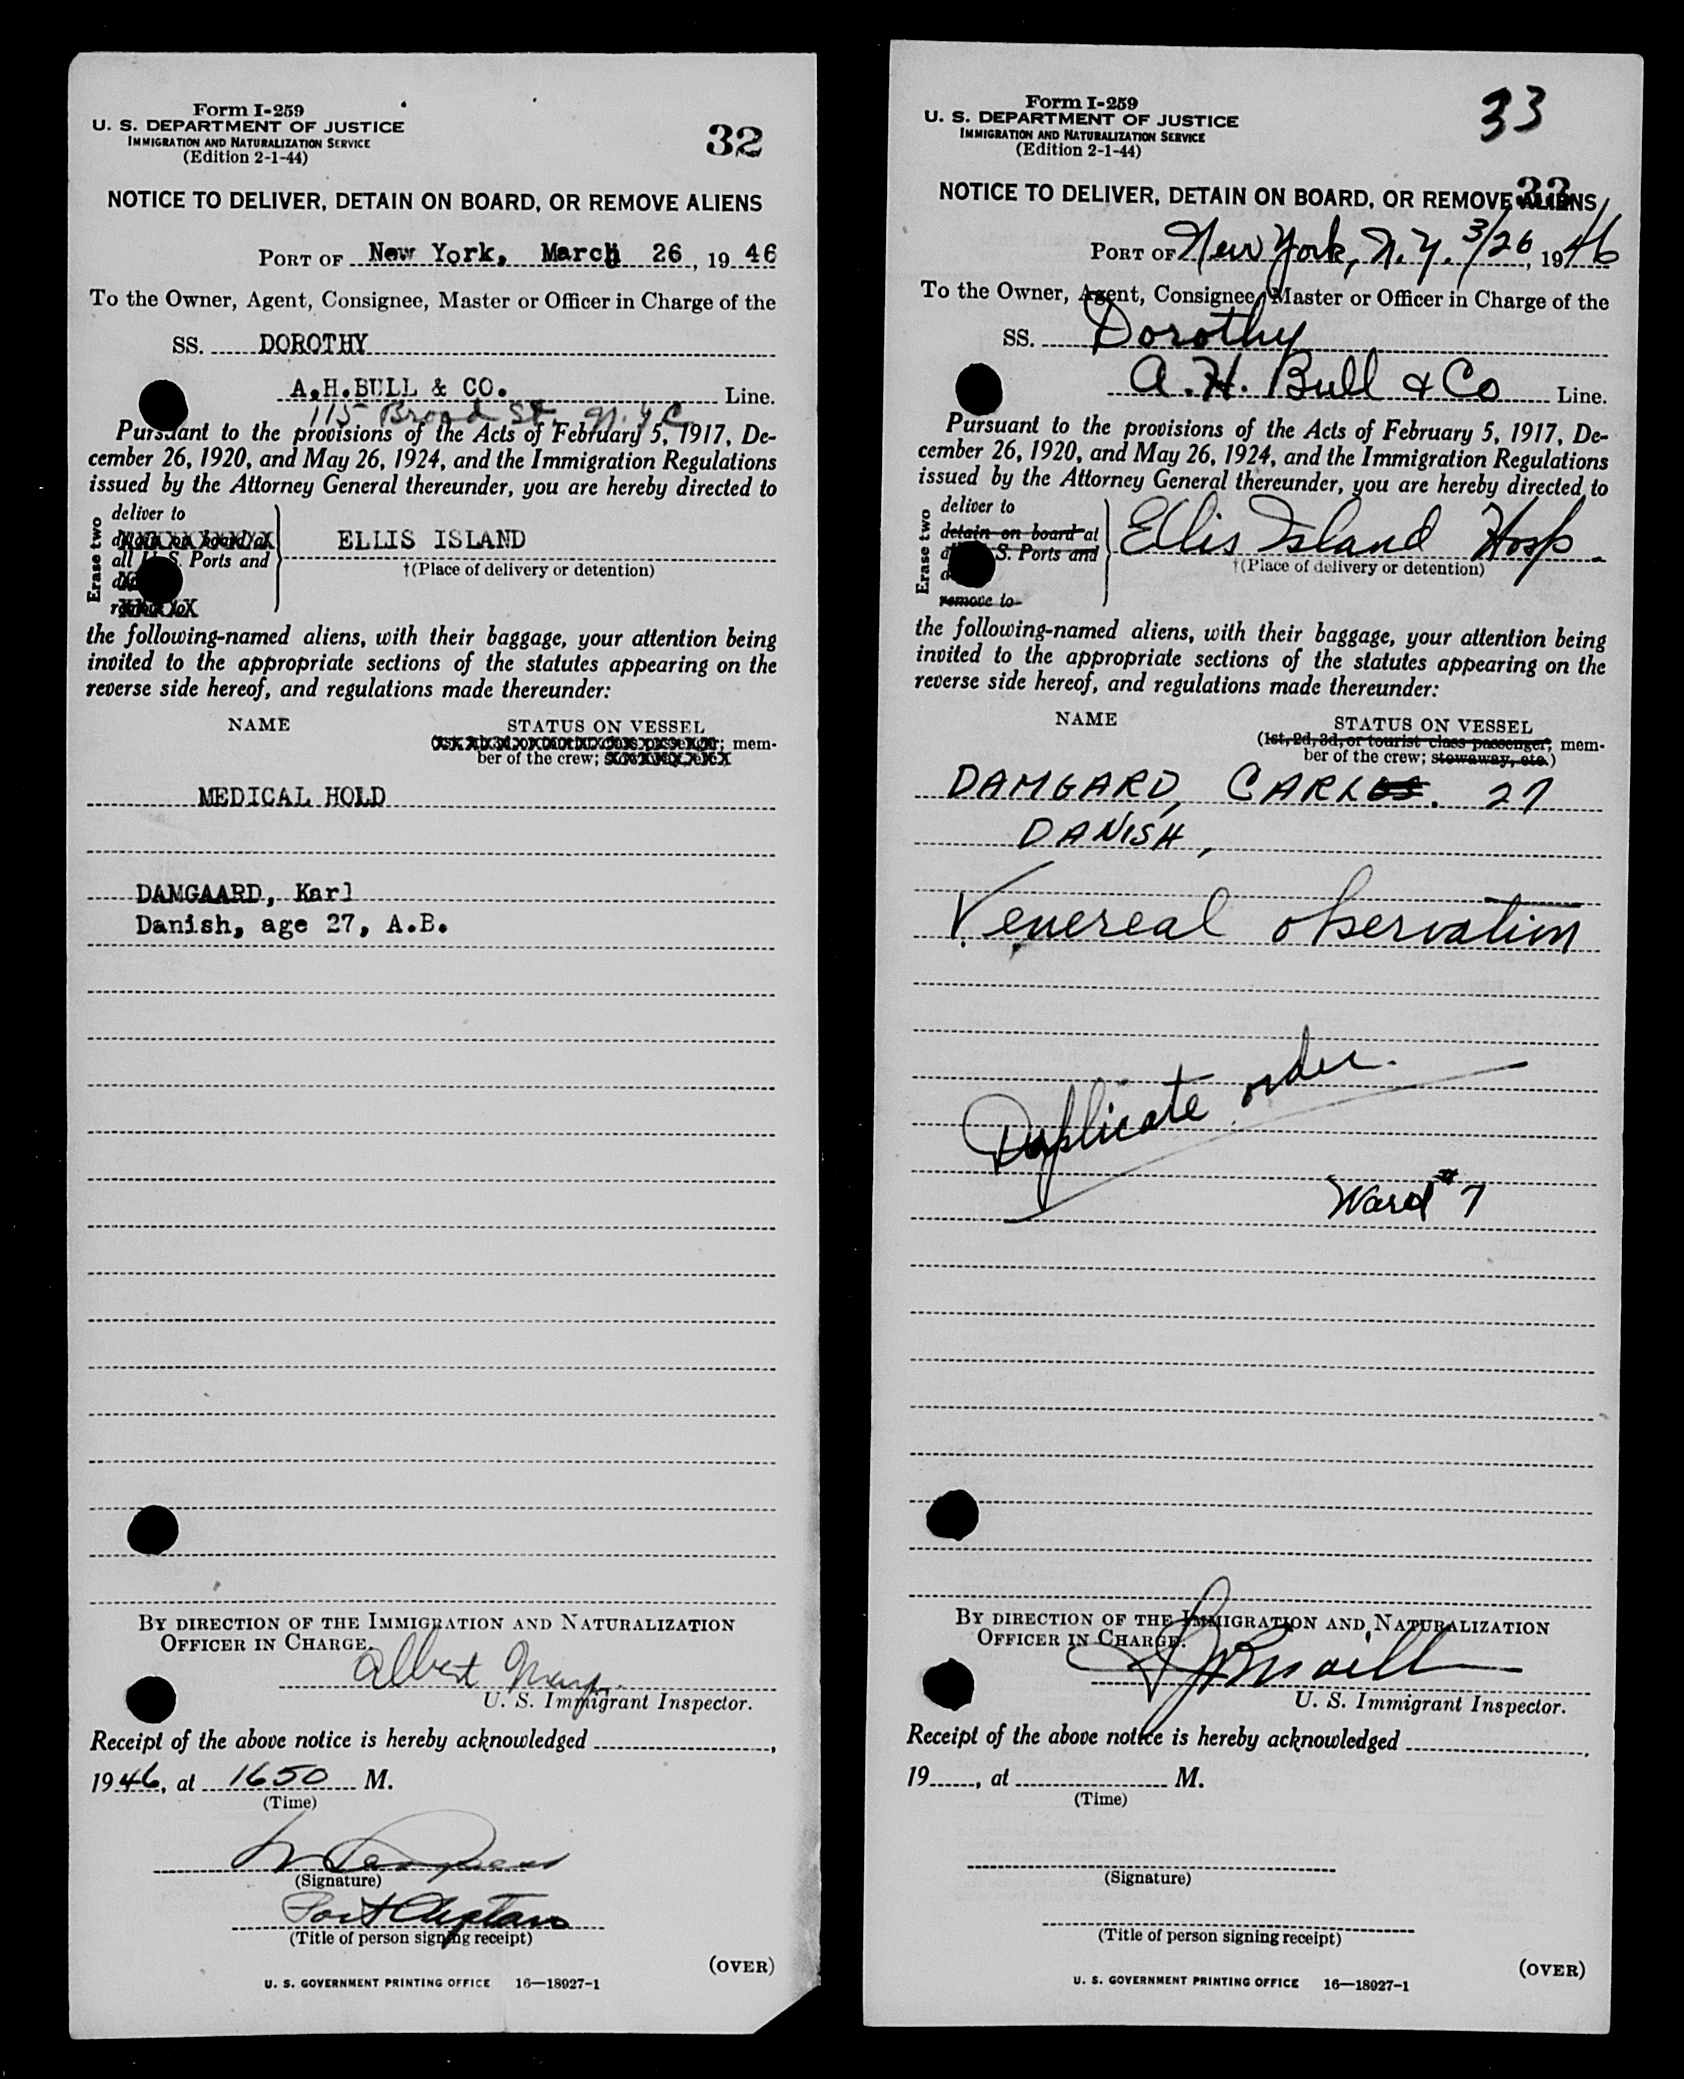 Form I-259
U. S. DEPARTMENT OF JUSTICE
IMMIGRATION AND NATURALIZATION SERVICE
(Edition 2-1-44)
32
NOTICE TO DELIVER, DETAIN ON BOARD, OR REMOVE ALIENS
PORT OF New York, March 26, 19 46
To the Owner, Agent, Consignee, Master or Officer in Charge of the
SS. DOROTHY
A.H.BULL & CO. Line.
115 Broad St. N.Y.C
Pursuant to the provisions of the Acts of February 5, 1917, De-
cember 26, 1920, and May 26, 1924, and the Immigration Regulations
issued by the Attorney General thereunder, you are hereby directed to
Erase two
deliver to
detain on board at
all U. S. Ports and
remove to
ELLIS ISLAND
†(Place of delivery or detention)
the following-named aliens, with their baggage, your attention being
invited to the appropriate sections of the statutes appearing on the
reverse side hereof, and regulations made thereunder:
NAME STATUS ON VESSEL
mem-
ber of the crew;
MEDICAL HOLD
DAMGAARD, Karl
Danish, age 27, A.B.
BY DIRECTION OF THE IMMIGRATION AND NATURALIZATION
OFFICER IN CHARGE.
Albert
U. S. Immigrant Inspector.
Receipt of the above notice is hereby acknowledged ,
1946, at 1650 M.
(Time)
(Signature)
Port Captain
(Title of person signing receipt)
(OVER)
U. S. GOVERNMENT PRINTING OFFICE 16—18927-1
Form I-259
U. S. DEPARTMENT OF JUSTICE
IMMIGRATION AND NATURALIZATION SERVICE
(Edition 2-1-44)
33
33
NOTICE TO DELIVER, DETAIN ON BOARD, OR REMOVE ALIENS
PORT OF New York, N.Y. 3/26, 19 46
To the Owner, Agent, Consignee, Master or Officer in Charge of the
SS. Dorothy
A. H. Bull & Co Line.
Pursuant to the provisions of the Acts of February 5, 1917, De-
cember 26, 1920, and May 26, 1924, and the Immigration Regulations
issued by the Attorney General thereunder, you are hereby directed to
Erase two
deliver to
detain on board at
S. Ports and
remove to
Ellis Island Hosp.
†(Place of delivery or detention)
the following-named aliens, with their baggage, your attention being
invited to the appropriate sections of the statutes appearing on the
reverse side hereof, and regulations made thereunder:
NAME STATUS ON VESSEL
(1st, 2d, 3d, or tourist class passenger; mem-
ber of the crew; stowaway, etc.)
DAMGARD, CARL. 27
DANISH,
Venereal observation
Duplicate order.
Ward #7
BY DIRECTION OF THE IMMIGRATION AND NATURALIZATION
OFFICER IN CHARGE.
U. S. Immigrant Inspector.
Receipt of the above notice is hereby acknowledged ,
19 , at M.
(Time)
(Signature)
(Title of person signing receipt)
(OVER)
U. S. GOVERNMENT PRINTING OFFICE 16—18927-1